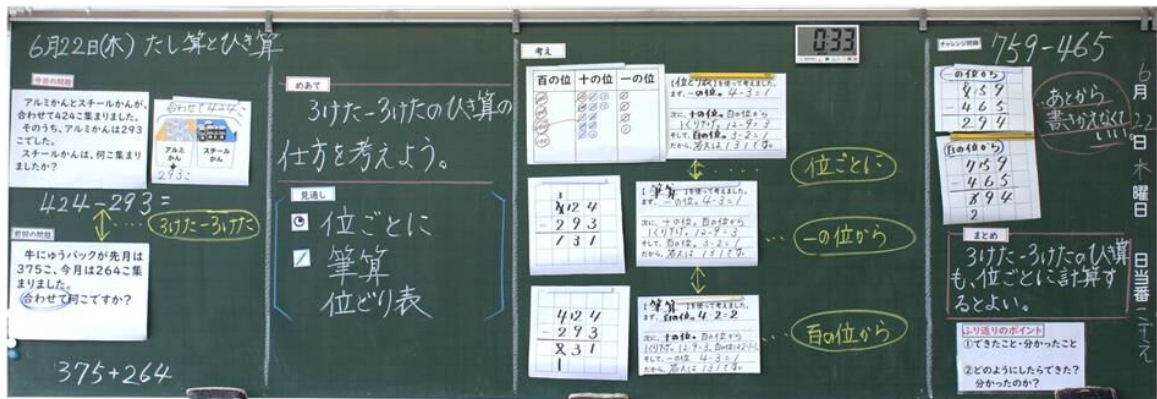 6月22日(木) たし算とひき算
今日の問題
アルミかんとスチールかんが、
合わせて424こ集まりました。
そのうち、アルミかんは293
こでした。
スチールかんは、何こ集まり
ましたか?
合わせて424こ
アルミ
かん
スチール
かん
293こ
424-293=
3けた-3けた
前回の問題
牛にゅうパックが先月は
375こ、今月は264こ集
まりました。
合わせて何こですか?
375+264
めあて
3けた-3けたのひき算の
仕方を考えよう。
見通し
位ごとに
筆算
位どり表
考え
百の位 十の位 一の位
【位どり表】を使って考えました。
まず、一の位。4-3=1
次に、十の位。百の位から
1くり下げ。12-9=3
そして、百の位。3-2=1
だから、答えは131です。
位ごとに
1
424
-293
131
【筆算】を使って考えました。
まず、一の位。4-3=1
次に、十の位。百の位から
1くり下げ。12-9=3
そして、百の位。3-2=1
だから、答えは131です。
一の位から
424
-293
231
1
【筆算】を使って考えました。
まず、百の位。4-2=2
次に、十の位。百の位から
そして、一の位 4-3=1
だから、答えは131です。
百の位から
0:33
チャレンジ問題
759-465
一の位から
759
-465
294
百の位から
759
-465
394
2
あとから
書きかえなくて
いい
まとめ
3けた-3けたのひき算
も、位ごとに計算す
るとよい。
ふり返りのポイント
①できたこと・分かったこと
②どのようにしたらできた?
分かったのか?
6月22日 木曜日 日当番